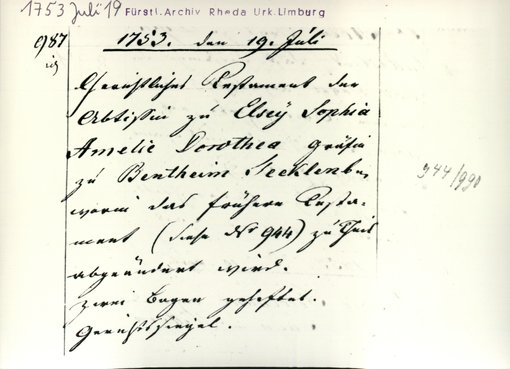 1753 Juli 19 Fürstl. Archiv Rheda Urk. Limburg
987
1753. den 19. Juli
Gerichtliches Testament der
Äbtissin zu Elseÿ Sophia
Amelie Dorothea Gräfin
zu Bentheim Tecklenb.,
worin das frühere Testa-
ment (siehe No 944) zu Theil
abgeändert wird.
zwei Bogen geheftet.
Gerichtssiegel.
944/990